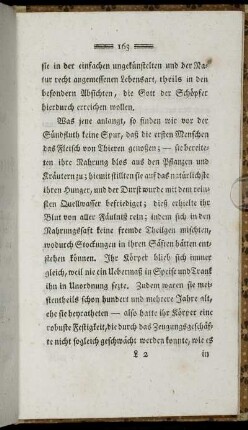 163
sie in der einfachen ungekünstelten und der Na-
tur recht angemessenen Lebensart, theils in den
besondern Absichten, die Gott der Schöpfer
hierdurch erreichen wollen.
Was jene anlangt, so finden wir vor der
Sündfluth keine Spur, daß die ersten Menschen
das Fleisch von Thieren genossen; — sie bereite-
ten ihre Nahrung blos aus den Pflanzen und
Kräutern zu; hiemit stillten sie auf das natürlichste
ihren Hunger, und der Durst wurde mit dem rein-
sten Quellwasser befriediget; dieß erhielte ihr
Blut von aller Fäulniß rein; indem sich in den
Nahrungssaft keine fremde Theilgen mischten,
wodurch Stockungen in ihren Säften hätten ent-
stehen können. Ihr Körper blieb sich immer
gleich, weil nie ein Uebermaß in Speise und Trank
ihn in Unordnung sezte. Zudem waren sie mei-
stentheils schon hundert und mehrere Jahre alt,
ehe sie heyratheten — also hatte ihr Körper eine
robuste Festigkeit, die durch das Zeugungsgeschäf-
te nicht sogleich geschwächt werden konnte, wie es
L 2
in